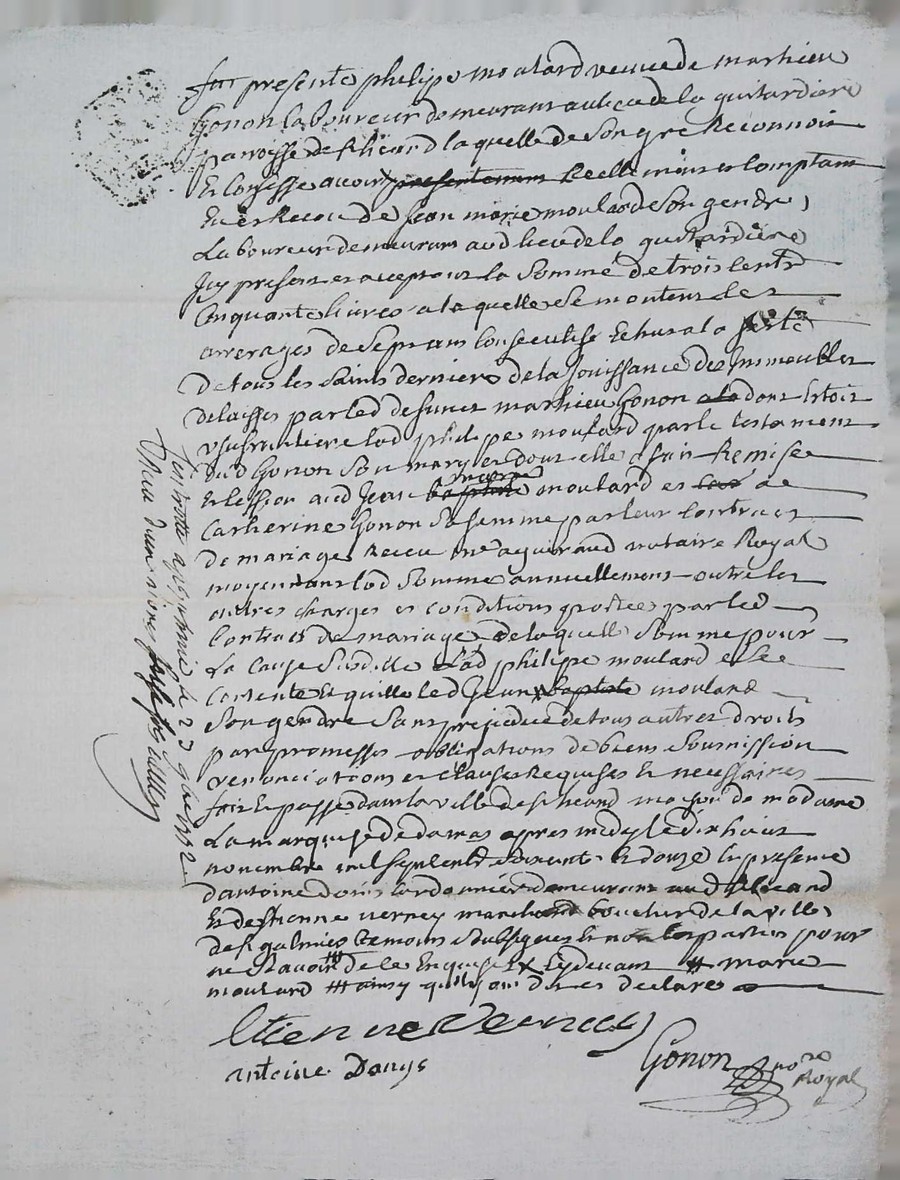 fut presente philipe moulard veuve de mathieu
Gonon laboureur demeurant au lieu de la quitardiere
parroisse de st heand laquelle de son gre Reconnoit
Et Confesse avoir presentement Reellemant et Comptant
Eu et Receu de Jean marie moulard son gendre
Laboureur demeurant aud lieu de la quitardiere
Icy present et acceptant la Somme de trois Cents
Cinquante livres a laquelle se montent les
arrerages de sept ans Consecutifs Echus a la feste
de tous les Saints derniere de la Jouissance des Immeubles
delaisses par led defunct mathieu Gonon dont Estoit
usufruitiere lad philipe moulard par le testament
dud Gonon Son mary et dont elle a fait Remise
et Cession aud Jean marie moulard et a
Catherine Gonon sa femme par leur Contract
de mariage Receu me notaire Royal
moyennant lad somme annuellement outre les
autres charges et conditions portees par led
Contract de mariage de laquelle Somme pour
La Cause Susd lad philipe moulard Se
Contente Et quitte led Jean baptiste moulard
Son gendre Sans prejudice de tous autres droits
par promesses obligations de biens Soumissions
renonciations et clauses Requises Et necessaires
fait Et passé dans la ville de st heand maison de madame
La marquise de damas apres midy le dixhuit
novembre mil Sept Cent soixante Et douze En presence
d'antoine cordonnier demeurant aud st heand
Et d'estienne verney marchand boucher de la ville
de st galmier temoins Soubsignes Et non les parties pour
ne Scavoir de ce Enquises Et Cy devant # marie
moulard # ainsy quils ont dit et declare
Etienne Verney
antoine Donys
Gonon no re Royal
Controllé a st heand le 23 9bre 1772
Receu